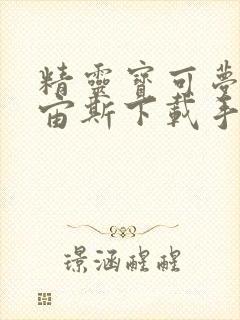 精靈寶可夢
宙斯下載手
璟涵醒醒